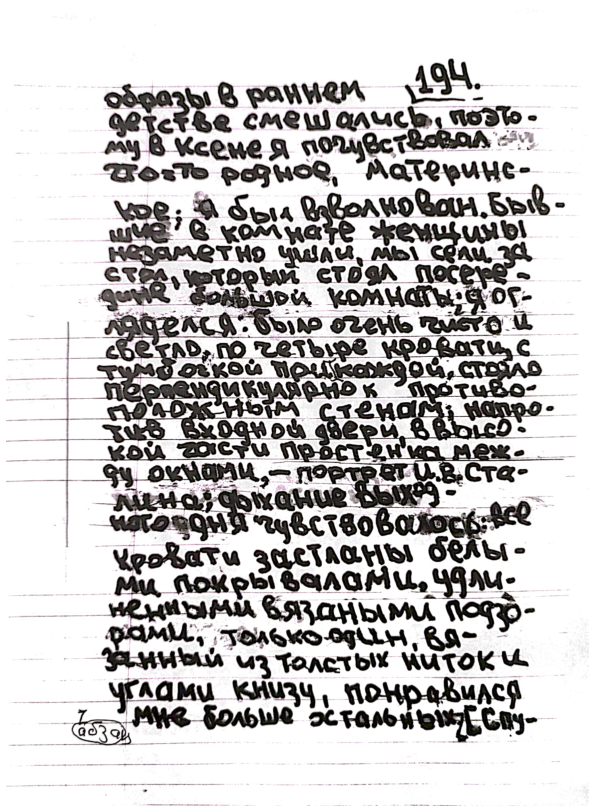 194.
образы в раннем
детстве смешались, поэто-
му в Ксене я почувствовал
что-то родное, материнс-
кое; я был взволнован. Быв-
шие в комнате женщины
незаметно ушли, мы сели за
стол, который стоял посере-
дине большой комнаты; я ог-
ляделся: было очень чисто и
светло, по четыре кровати, с
тумбочкой при каждой, стояло
перпендикулярно к противо-
положным стенам; напро-
тив входной двери, в высо-
кой части простенка меж-
ду окнами, – портрет И.В. Ста-
лина; дыхание выход-
ного дня чувствовалось: все
кровати застланы белы-
ми покрывалами, удли-
ненными вязаными подзо-
рами, только один, вя-
занный из толстых ниток и
углами книзу, понравился
мне больше остальных. [Спу-
абзац